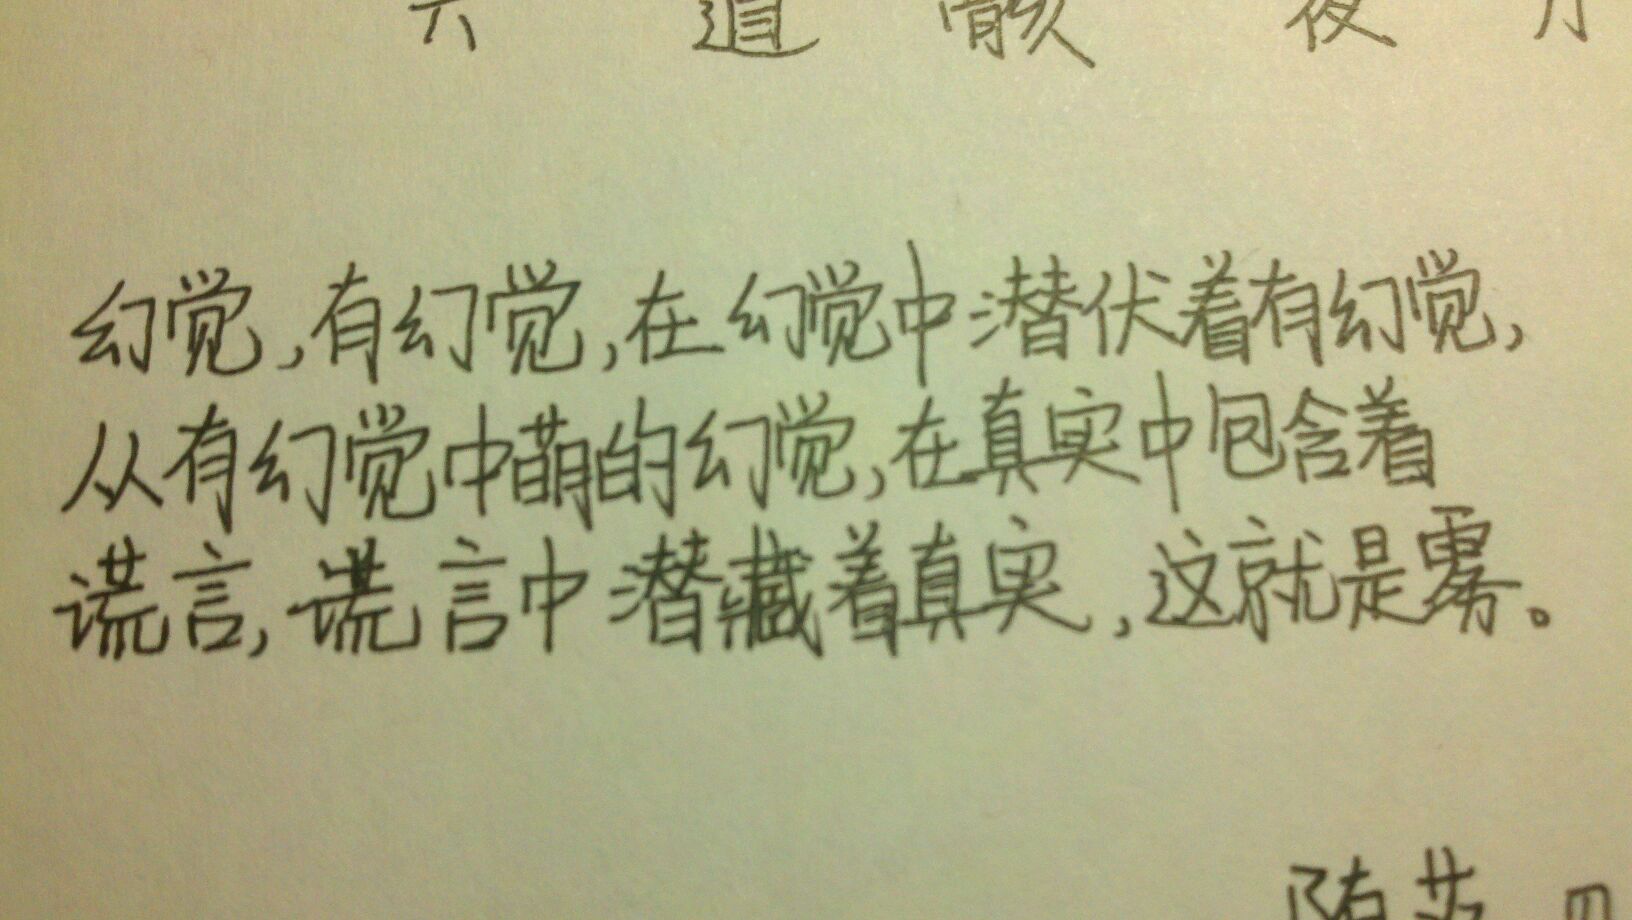 六 道 骸 夜
幻觉,有幻觉,在幻觉中潜伏着有幻觉,
从有幻觉中萌的幻觉,在真实中包含着
谎言,谎言中潜藏着真实,这就是雾。